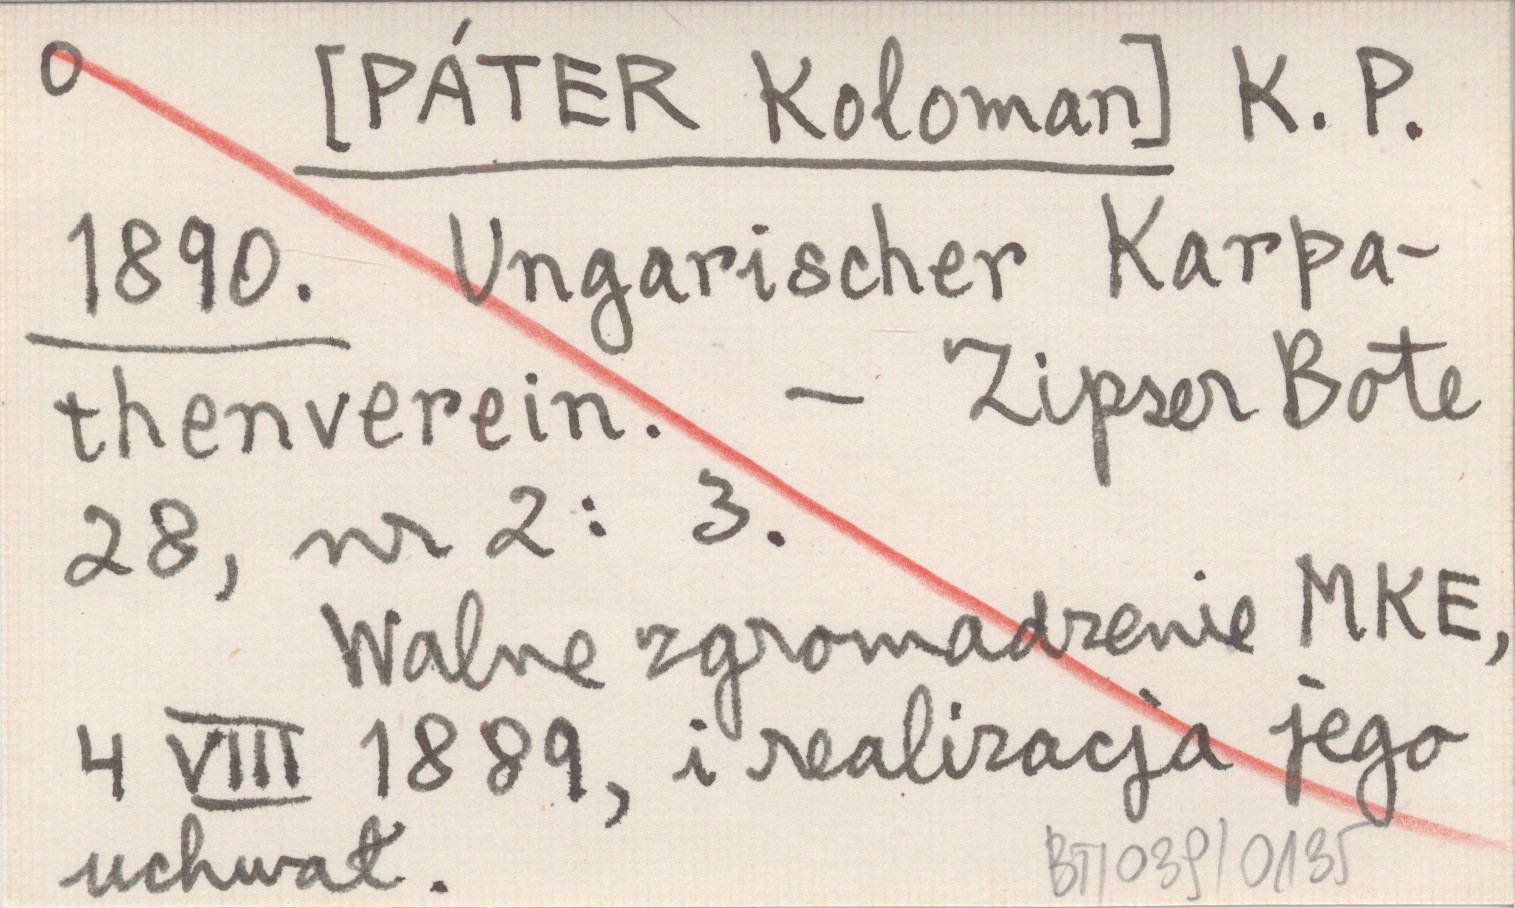 O [PÁTER Koloman] K. P.
1890. Ungarischer Karpa-
thenverein. – Zipser Bote
28, nr 2: 3.
Walne zgromadzenie MKE,
4 VIII 1889, i realizacja jego
uchwał.
BT/039/0135